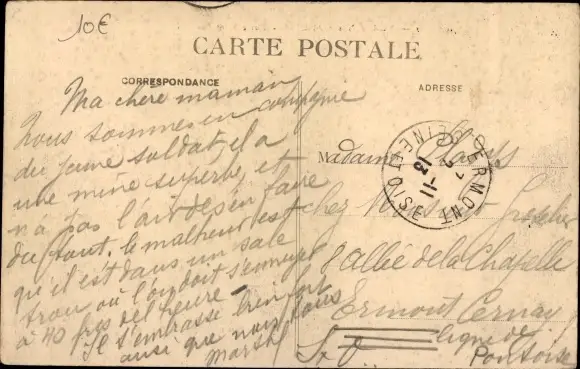 10€
CARTE POSTALE
CORRESPONDANCE
ADRESSE
Ma chère maman
Nous sommes en compagnie
du jeune soldat, il a
une mine superbe et
n'a pas l'air de s'en faire
du tout. le malheur est
qu'il est dans un sale
trou où l'on doit s'ennuyer
à 40 frs de l'heure
Il t'embrasse bien fort
ainsi que nous tous
Madame
chez Monsieur
8 allée de la Chapelle
Ermont Cernay
S-O ligne de
Pontoise
ERMONT
SEINE ET OISE
11-21